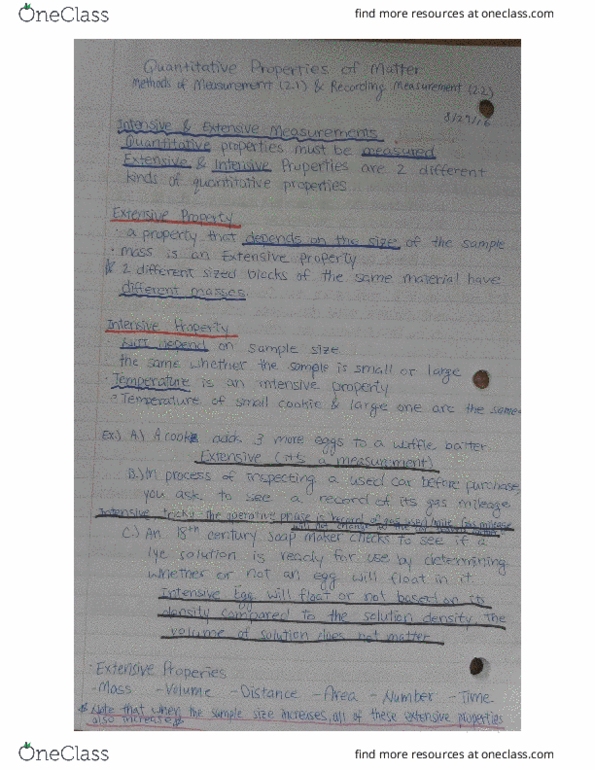 OneClass
find more resources at oneclass.com
Quantitative Properties of Matter
Methods of Measurement (2.1) & Recording Measurement (2.2)
8/29/16
Intensive & Extensive Measurements
Quantitative properties must be measured
Extensive & Intensive Properties are 2 different
kinds of quantitative properties
Extensive Property
· a property that depends on the size of the sample
· mass is an Extensive property
2 different sized blocks of the same material have
different masses.
Intensive Property
depend on sample size
the same whether the sample is small or large
· Temperature is an intensive property
Temperature of small cookie & large one are the same
Ex.) A.) A cook adds 3 more eggs to a waffle batter.
Extensive (its a measurement)
B.) In process of inspecting a used car before purchase,
you ask to see a record of its gas mileage
Intensive tricky - the operative phase is record of gas
C.) An 18th century soap maker checks to see if a
lye solution is ready for use by determining
whether or not an egg will float in it.
Intensive Egg will float or not based on its
density compared to the solution density, the
volume of solution does not matter
· Extensive Properies
- Mass - Volume - Distance - Area - Number - Time
* Note that when the sample size increases, all of these extensive properties
also increase
OneClass
find more resources at oneclass.com